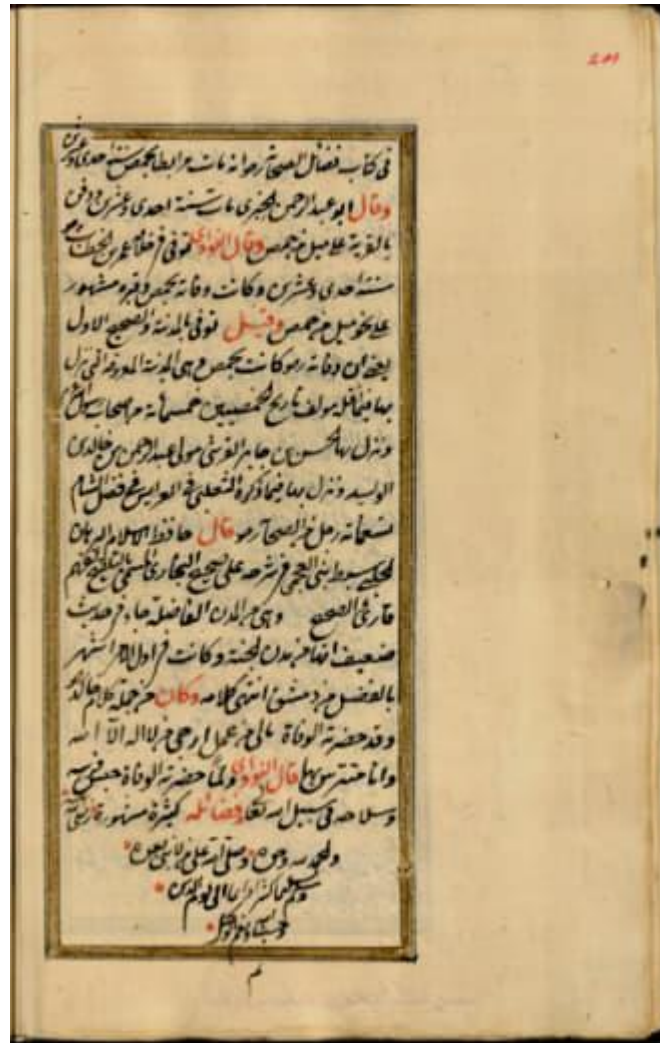 في كتاب فضائل الصحابة رضوانه مات مرابطا بحمص سنة احدى وعشرين
وقال ابو عبد الرحمن مات سنة احدى وعشرين ودفن
بالقرية على ميل من حمص وقال النووي توفي في خلافة عمر بن الخطاب
سنة احدى وعشرين وكانت وفاته بحمص وقبره مشهور
على نحو ميل من حمص وقيل توفي بالمدينة والصحيح الاول
يعني ان وفاته رضو كانت بحمص وهي المدينة التي نزل
بها فيما نقله مولف تاريخ الحمصيين خمسمائة من اصحاب
ونزل بها الحسن بن جابر القرشي مولى عبد الرحمن بن خالد بن
الوليد ونزل بها فيما ذكره الثعلبي في العرايس في فضل الشام
تسعمائة رجل من الصحابة رضو قال حافظ الاسلام
الحلبي سبط ابن العجمي في شرحه على صحيح البخاري المسمى بالتلقيح لفهم
قارئ الصحيح وهي من المدن الفاضلة جاء في حديث
ضعيف انها من مدن الجنة وكانت في اول الامر اشهر
بالفضل من دمشق انتهى كلامه وكان من جملة كلام خالد
وقد حضرته الوفاة مالي من عمل ارجى من لا اله الا الله
وانا متترس بها قال النووي ولما حضرته الوفاة حبس فرسه
وسلاحه في سبيل الله تعالى فضائله كثيرة مشهورة
والحمد لله وحده وصلى الله على من لا نبي بعده
وسلم تسليما كثيرا الى يوم الدين
حسبنا الله ونعم الوكيل
م